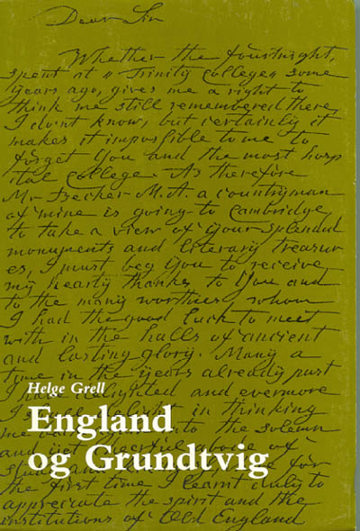 Dear Sir
Whether the fourtnight,
spent at "Trinity College" some
years ago, gives me a right to
think me still remembered there
I don't know, but certainly it
makes it impossible to me to
forget You and the most hosp
ital College. As therefore
Mr Becker M.A. a countryman
of mine is going to Cambridge
to take a view of your splendid
monuments and literary treasur
es, I must beg You to receive
my hearty thanks to You and
to the many worthies whom
I had the good luck to meet
with in the halls of ancient
and lasting glory. Many a
time in the years already past
I have delighted and evermore
in thinking
to the solemn
and
above of
for
the first time I learnt duly to
appreciate the spirit and the
institutions of Old England
Helge Grell
England
og Grundtvig